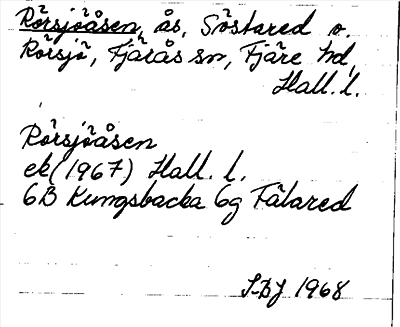 Rörsjöåsen, ås, Söstared o.
Rörsjö, Fjärås sn, Fjäre hd,
Hall. l.
Rörsjöåsen
ek (1967) Hall. l.
6B Kungsbacka 6g Tälared
S-BJ 1968